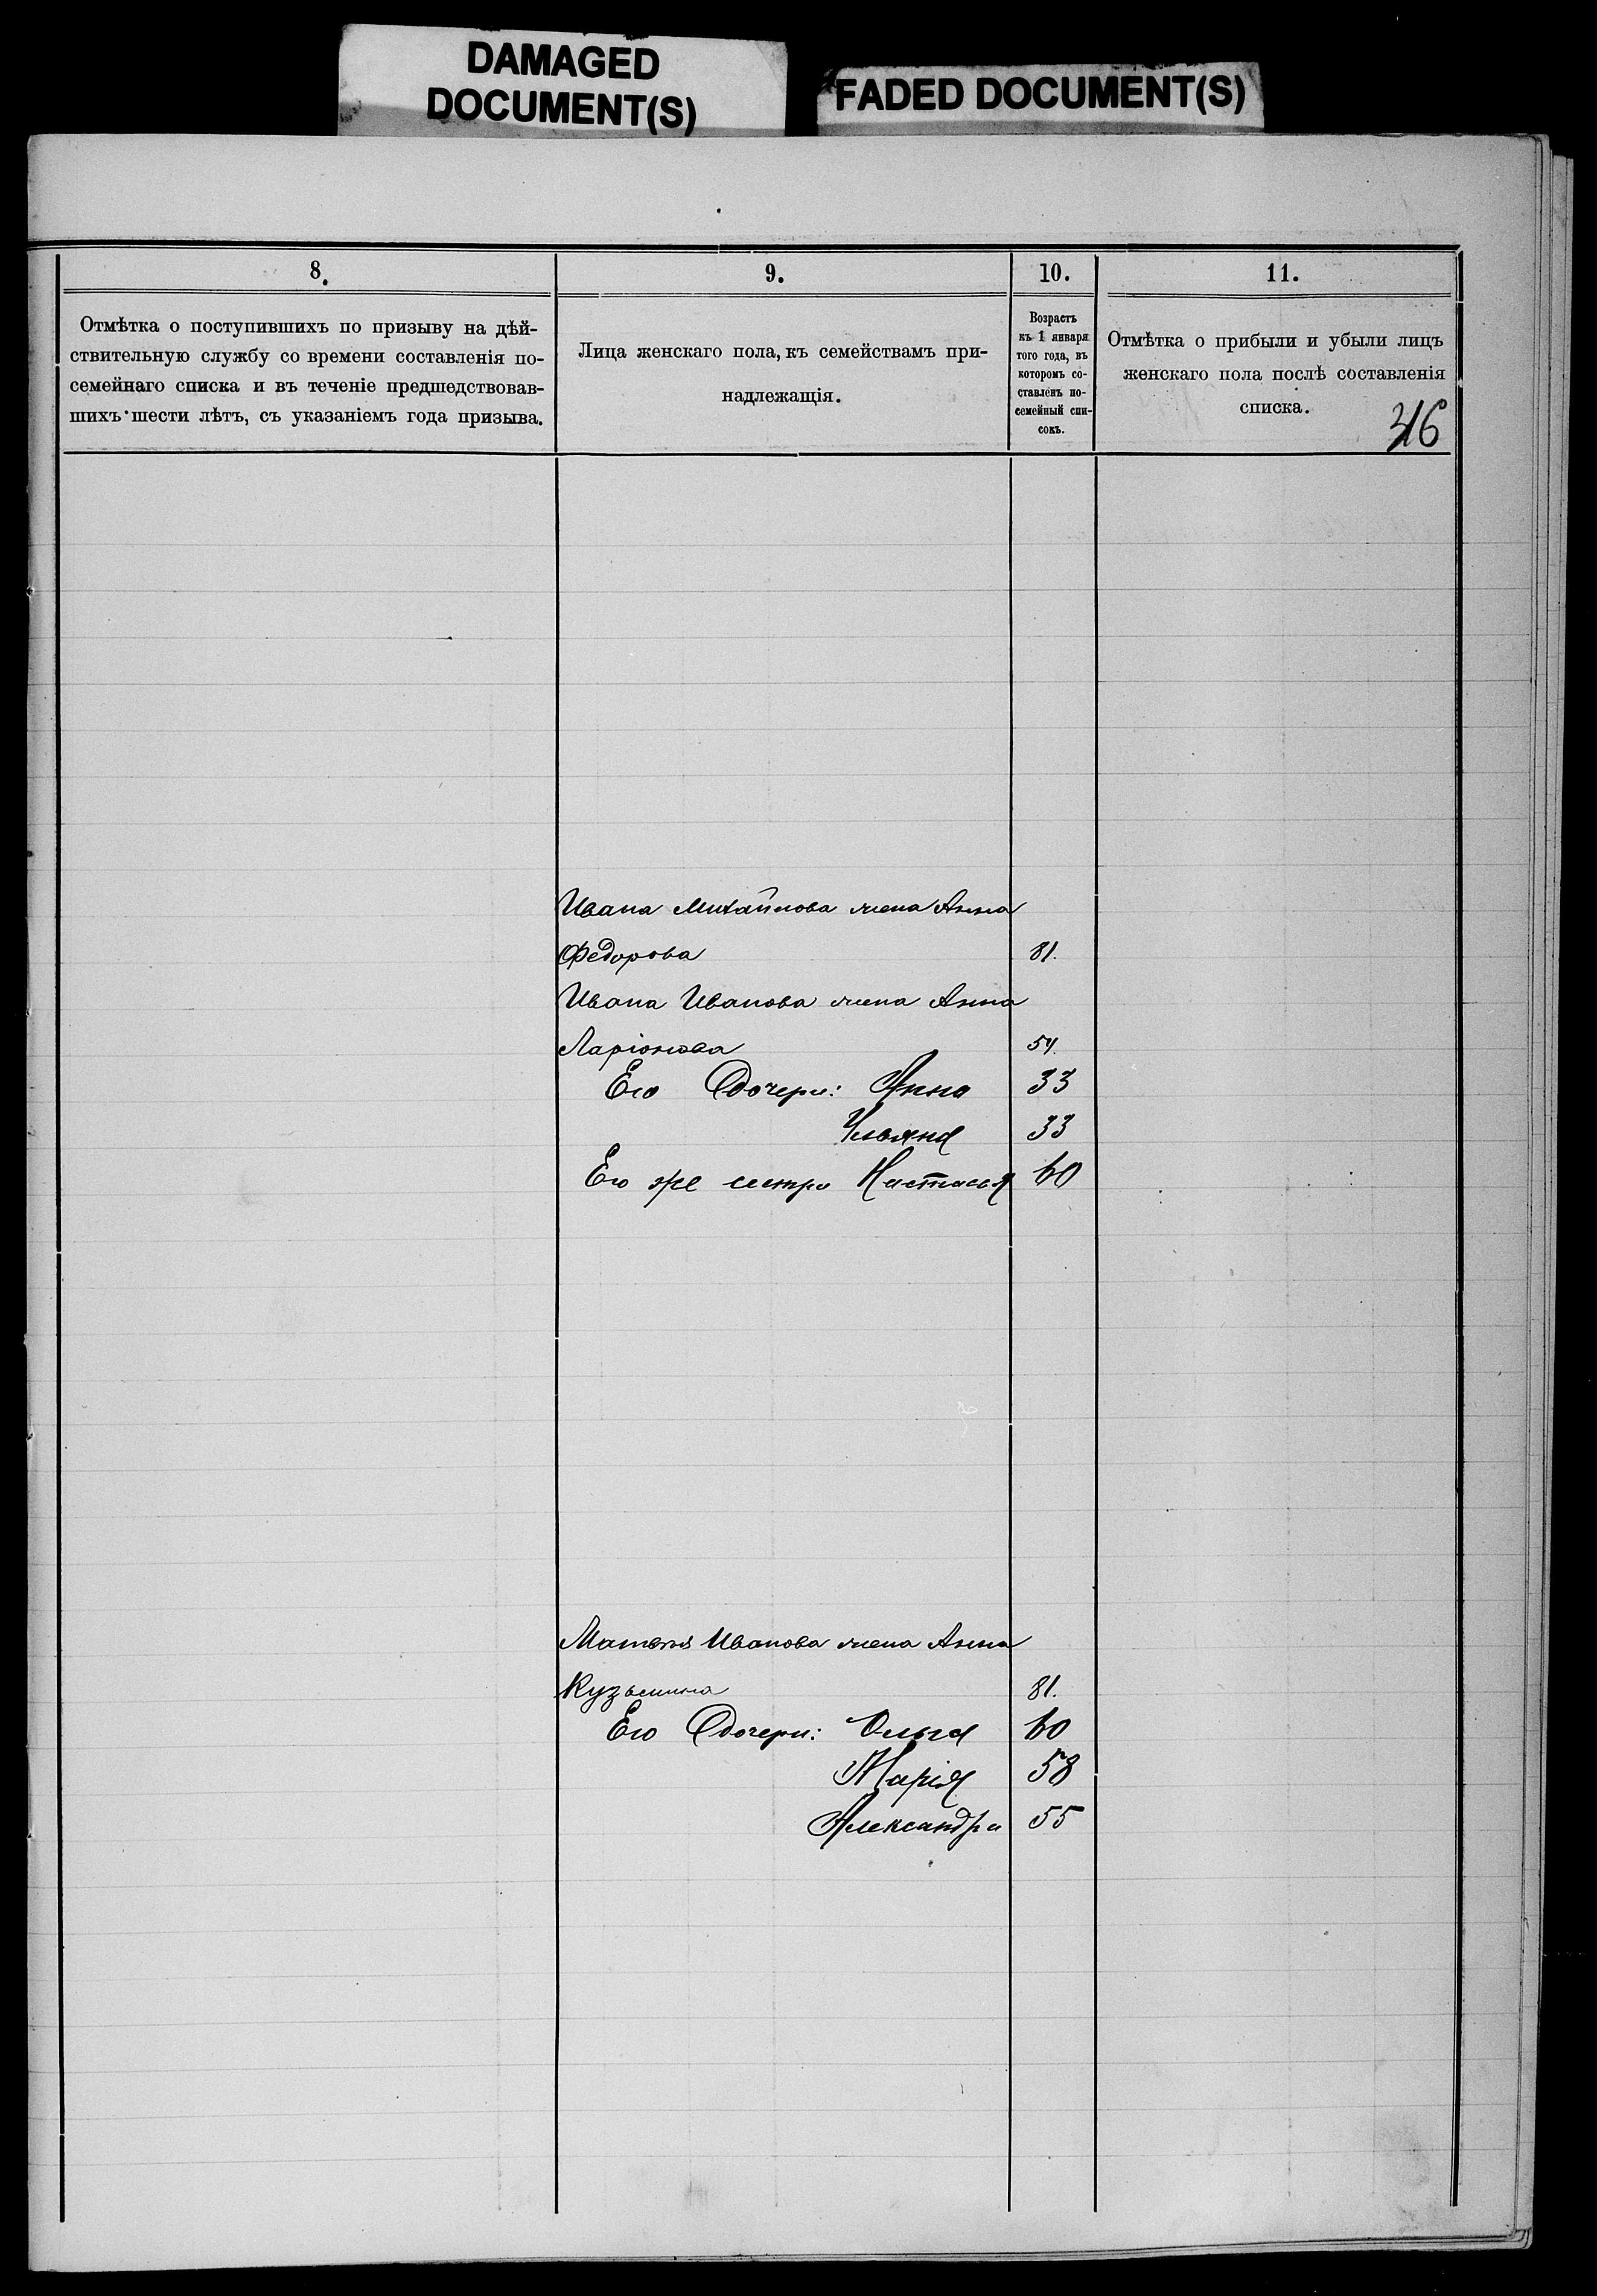 DAMAGED
DOCUMENT(S)
FADED DOCUMENT(S)
8.
9.
10.
11.
Отмѣтка о поступившихъ по призыву на дѣй-
ствительную службу со времени составленія по-
семейнаго списка и въ теченіе предшедствовав-
шихъ шести лѣтъ, съ указаніемъ года призыва.
Лица женскаго пола, къ семействамъ при-
надлежащія.
Возрастъ
къ 1 января
того года, въ
которомъ со-
ставленъ по-
семейный спи-
сокъ.
Отмѣтка о прибыли и убыли лицъ
женскаго пола послѣ составленія
списка.
Ивана Михайлова жена Анна
Федорова 81.
Ивана Иванова жена Анна
Ларіонова 54.
Его Дочери: Анна 33
Ульяна 33
Его же сестра Настасья 60
Матвѣя Иванова жена Анна
Кузьмина 81.
Его Дочери: Ольга 60
Марія 58
Александра 55